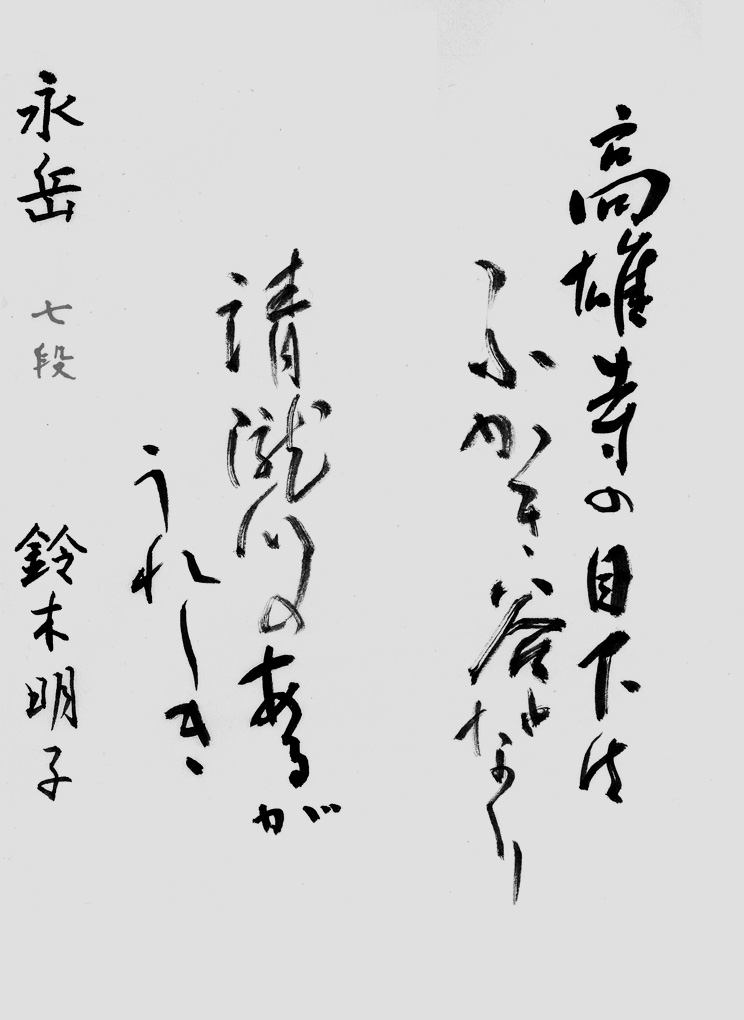 高雄寺の目下は
ふかき谷なり
清瀧川のあるが
うれしき
永岳 七段 鈴木明子